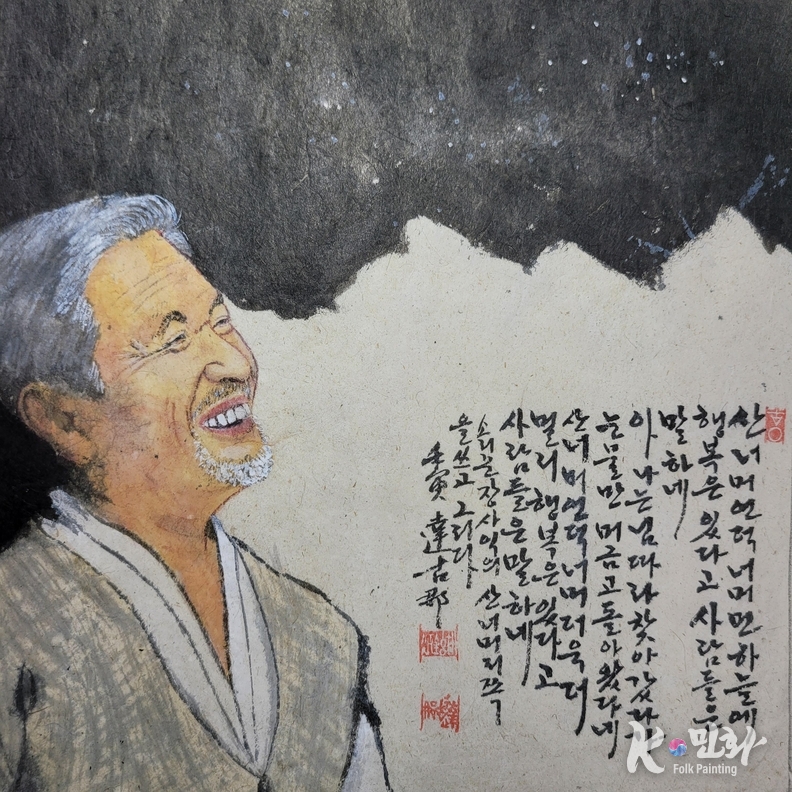 산 너머 언덕 너머 먼 하늘에
행복은 있다고 사람들은
말하네
아 나는 남따라 찾아갔다가
눈물만 머금고 돌아왔다네
산 너머 언덕 너머 더욱 더
멀리 행복은 있다고
사람들은 말하네
소리꾼 장사익의 산너머 저쪽
을 쓰고 그리다
壬寅 達古那
K민화
Folk Painting